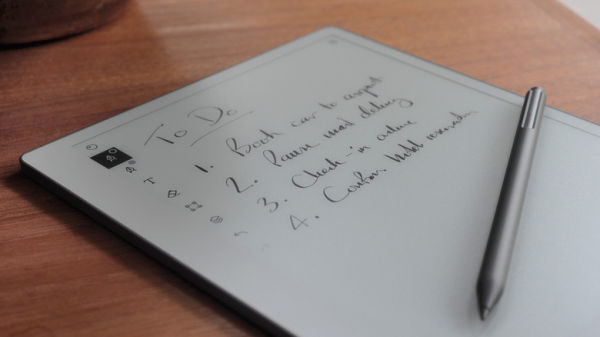 To Do
1. Book car to airport
2. Pause mail delivery
3. Check-in online
4. Confirm hotel reservation